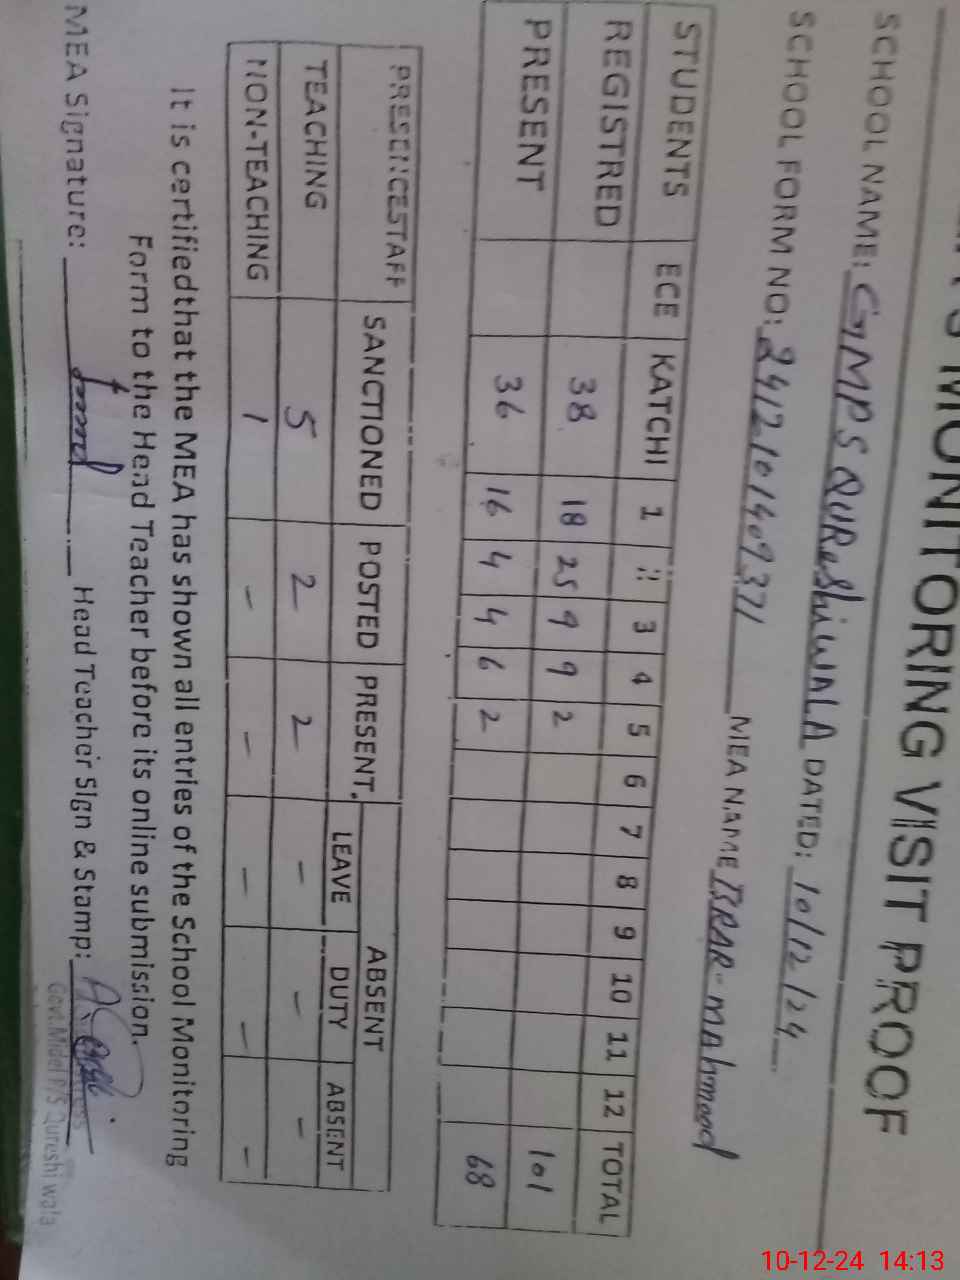 MONITORING VISIT PROOF
SCHOOL NAME: GMPS QUReshiwALA DATED: 10/12/24
SCHOOL FORM NO: 2412101409371 MEA NAME IBRAR-mahmood
STUDENTS ECE KATCHI 1 2 3 4 5 6 7 8 9 10 11 12 TOTAL
REGISTRED 38 18 25 9 9 2 101
PRESENT 36 16 4 4 6 2 68
PRESENCESTAFF SANCTIONED POSTED PRESENT. ABSENT
LEAVE DUTY ABSENT
TEACHING 5 2 2 - - -
NON-TEACHING 1 - - - - -
It is certifiedthat the MEA has shown all entries of the School Monitoring
Form to the Head Teacher before its online submission.
MEA Signature: Head Teacher Sign & Stamp:
Govt.Midel P/S Qureshi wala
10-12-24 14:13